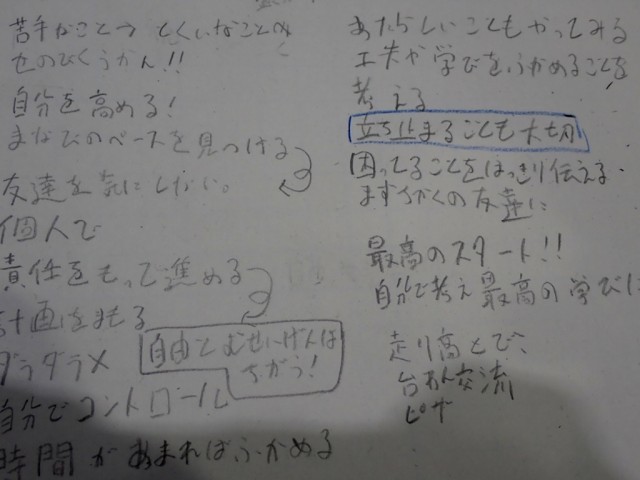 苦手なこと→とくいなことへ
せのびくうかん!!
自分を高める!
まなびのペースを見つける
友達を気にしない。
個人で
責任をもって進める
計画をまもる
ダラダラ×
自由とむせいげんは
ちがう!
自分でコントロール
時間があまればふかめる
あたらしいこともやってみる
工夫や学びをふかめることを
考える
立ち止まることも大切
困ってることをはっきり伝える
まずちかくの友達に
最高のスタート!!
自分で考え最高の学びに
走り高とび、
台おん交流
ピザ